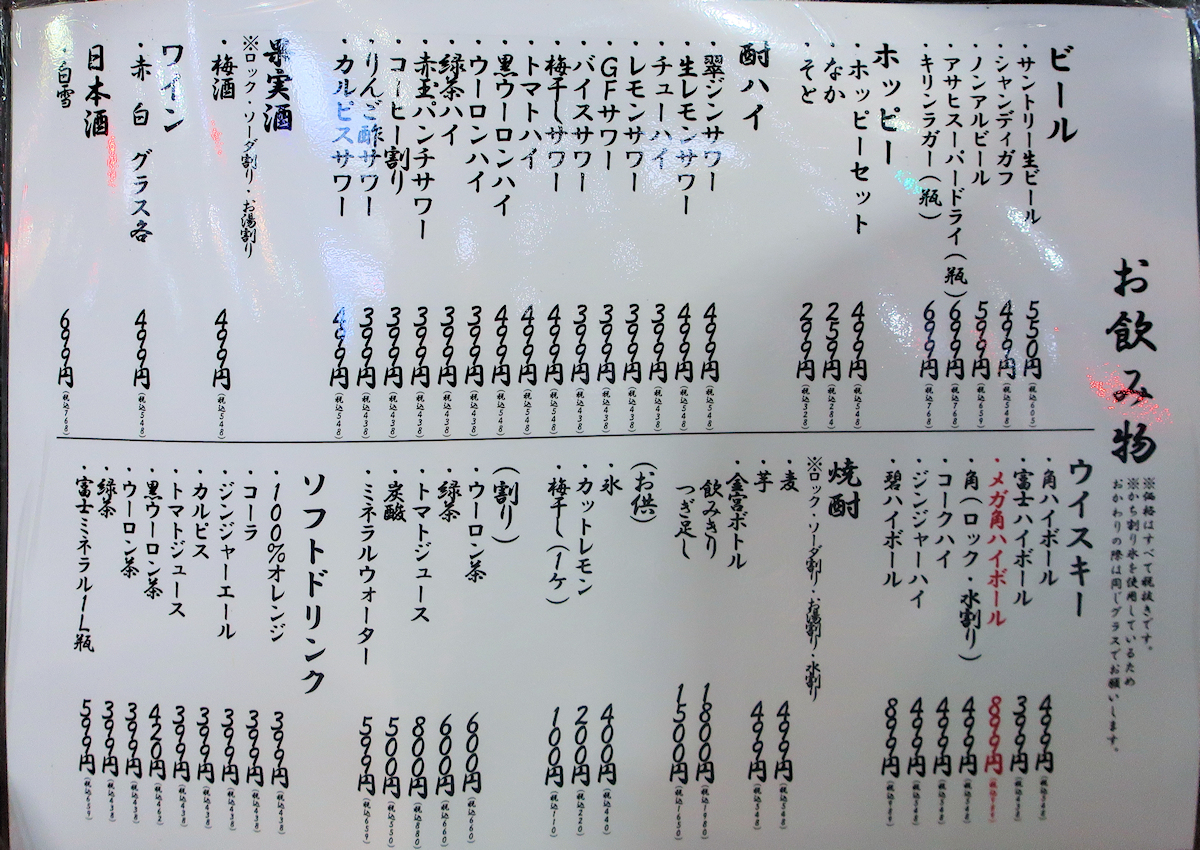 お飲み物
※価格はすべて税抜きです。
※かち割り氷を使用しているため
おかわりの際は同じグラスでお願いします。
ビール
・サントリー生ビール 550円(税込605)
・シャンディガフ 499円(税込548)
・ノンアルビール 599円(税込659)
・アサヒスーパードライ(瓶) 699円(税込768)
・キリンラガー(瓶) 699円(税込768)
ホッピー
・ホッピーセット 499円(税込548)
・なか 259円(税込284)
・そと 299円(税込328)
酎ハイ
・翠ジンサワー 499円(税込548)
・生レモンサワー 499円(税込548)
・チューハイ 399円(税込438)
・レモンサワー 399円(税込438)
・GFサワー 399円(税込438)
・バイスサワー 399円(税込438)
・梅干しサワー 499円(税込548)
・トマトハイ 499円(税込548)
・黒ウーロンハイ 499円(税込548)
・ウーロンハイ 399円(税込438)
・緑茶ハイ 399円(税込438)
・赤玉パンチサワー 399円(税込438)
・コーヒー割り 399円(税込438)
・りんご酢サワー 399円(税込438)
・カルピスサワー 499円(税込548)
果実酒
※ロック・ソーダ割り・お湯割り
・梅酒 499円(税込548)
ワイン
・赤 白 グラス各 499円(税込548)
日本酒
・白雪 699円(税込768)
ウイスキー
・角ハイボール 499円(税込548)
・富士ハイボール 399円(税込438)
・メガ角ハイボール 899円(税込989)
・角(ロック・水割り) 499円(税込548)
・コークハイ 499円(税込548)
・ジンジャーハイ 499円(税込548)
・碧ハイボール 899円(税込989)
焼酎
※ロック・ソーダ割り・お湯割り・水割り
・麦 499円(税込548)
・芋 499円(税込548)
・金宮ボトル
飲みきり 1800円(税込1980)
つぎ足し 1500円(税込1650)
(お供)
・氷 400円(税込440)
・カットレモン 200円(税込220)
・梅干し(1ケ) 100円(税込110)
(割り)
・ウーロン茶 600円(税込660)
・緑茶 600円(税込660)
・トマトジュース 800円(税込880)
・炭酸 500円(税込550)
・ミネラルウォーター 599円(税込659)
ソフトドリンク
・100%オレンジ 399円(税込438)
・コーラ 399円(税込438)
・ジンジャーエール 399円(税込438)
・カルピス 399円(税込438)
・トマトジュース 399円(税込438)
・黒ウーロン茶 420円(税込462)
・ウーロン茶 399円(税込438)
・緑茶 399円(税込438)
・富士ミネラル1L瓶 599円(税込659)